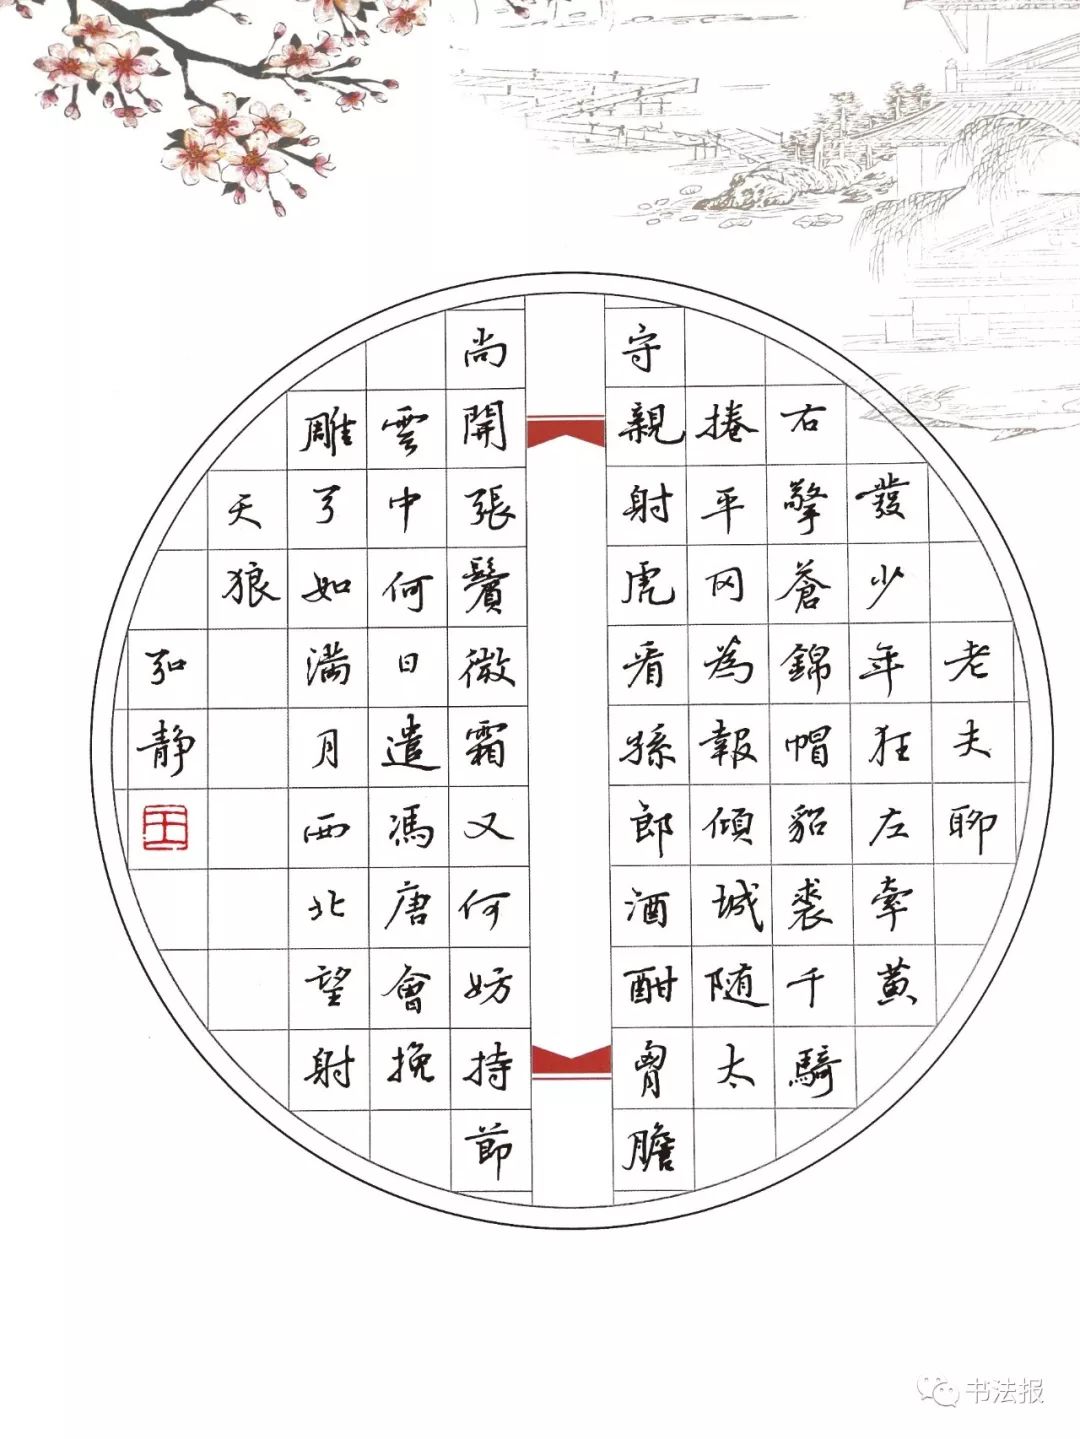 老夫聊
發少年狂左牽黃
右擎蒼錦帽貂裘千騎
捲平冈為報傾城随太
守親射虎看孫郎酒酣胷膽
尚開張鬢微霜又何妨持節
雲中何日遣馮唐會挽
雕弓如满月西北望射
天狼
弘静
王
书法报